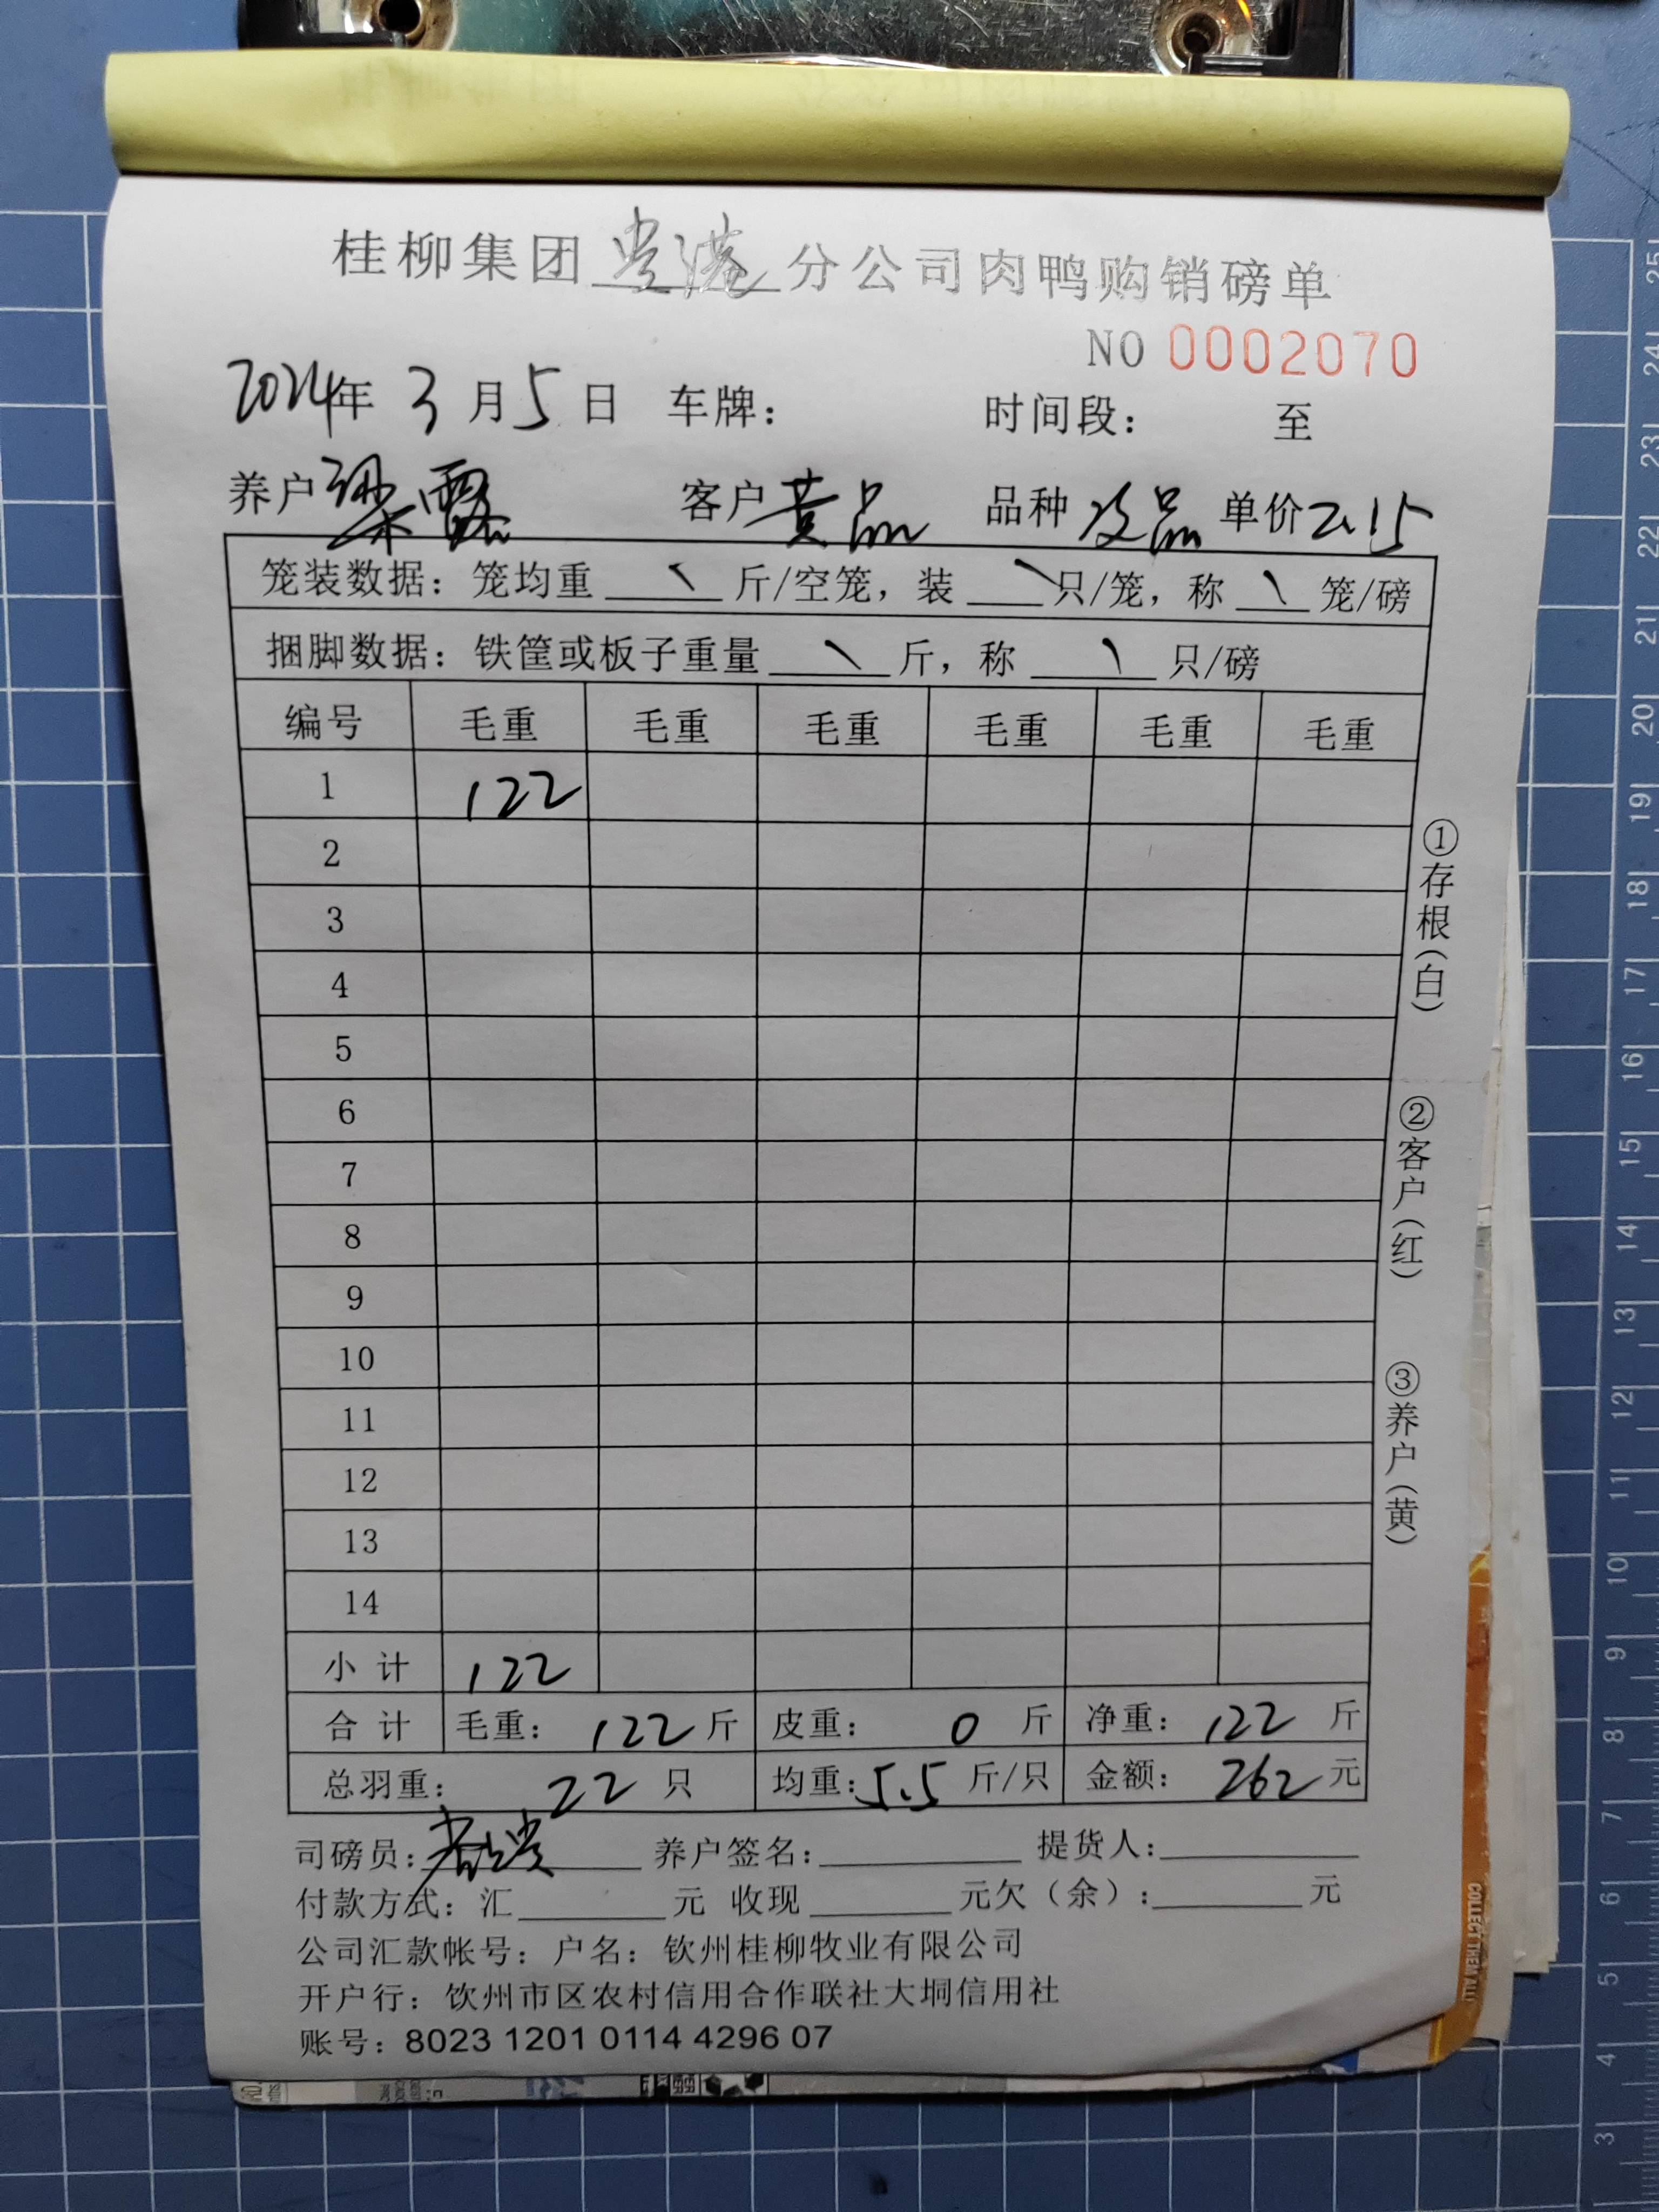 桂柳集团贵港分公司肉鸭购销磅单
NO 0002070
2024年 3 月 5 日 车牌： 时间段： 至
养户 梁露 客户 黄品 品种 次品 单价 2.15
笼装数据：笼均重 \ 斤/空笼，装 \ 只/笼，称 \ 笼/磅
捆脚数据：铁筐或板子重量 \ 斤，称 \ 只/磅
编号 毛重 毛重 毛重 毛重 毛重 毛重
1 122
2
3
4
5
6
7
8
9
10
11
12
13
14
小 计 122
合 计 毛重： 122 斤 皮重： 0 斤 净重： 122 斤
总羽重： 22 只 均重：5.5 斤/只 金额： 262 元
司磅员： 养户签名： 提货人：
付款方式：汇 元 收现 元欠（余）： 元
公司汇款帐号：户名：钦州桂柳牧业有限公司
开户行：饮州市区农村信用合作联社大垌信用社
账号：8023 1201 0114 4296 07
①存根（白）
②客户（红）
③养户（黄）
COLLECT THEM ALL!
25
24
23
22
21
20
19
18
17
16
15
14
13
12
11
10
9
8
7
6
5
4
3